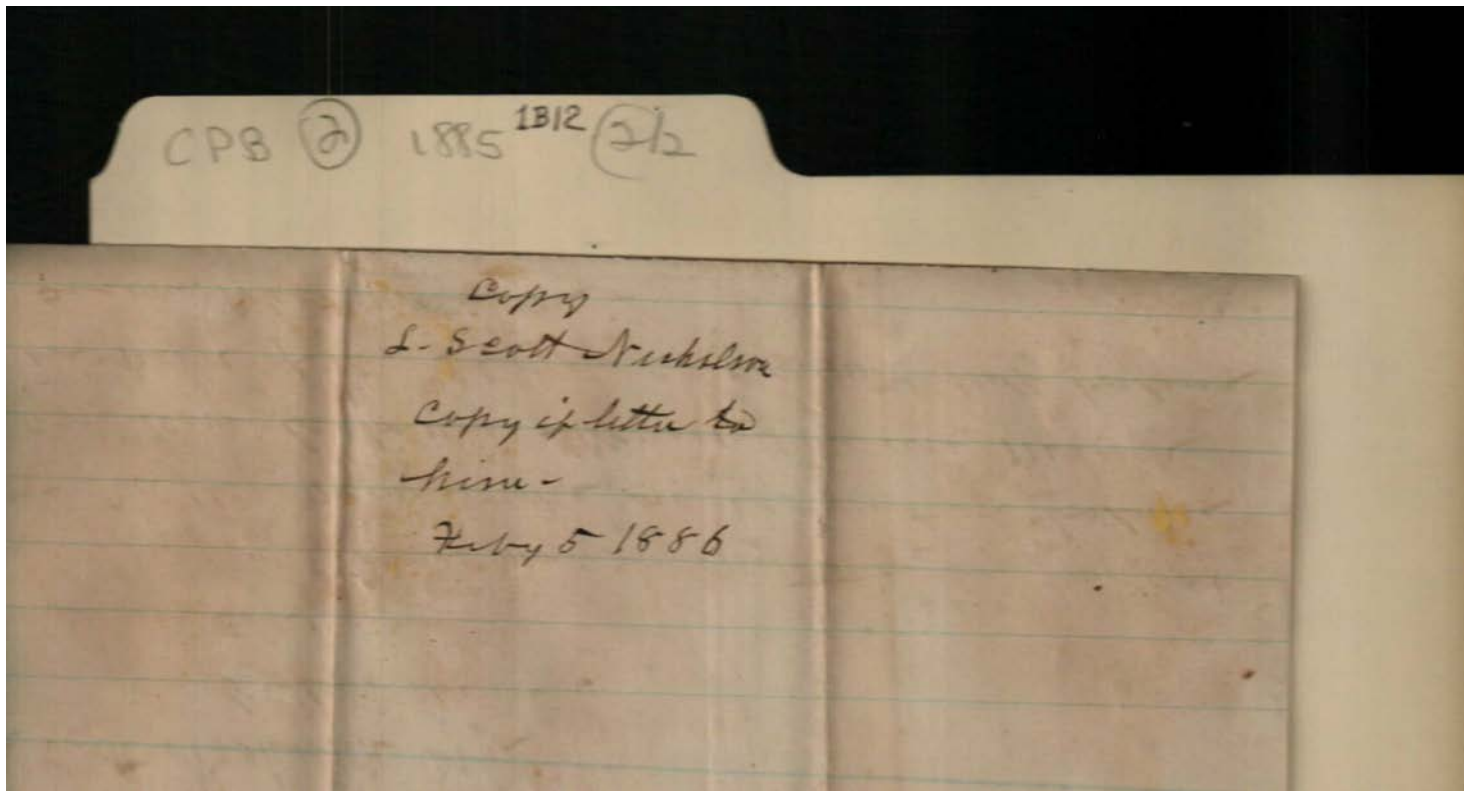 CPB 2 1885 1B12 2/2
Copy
L- Scott Nicholson
Copy of letter to
him-
Feby 5 1886